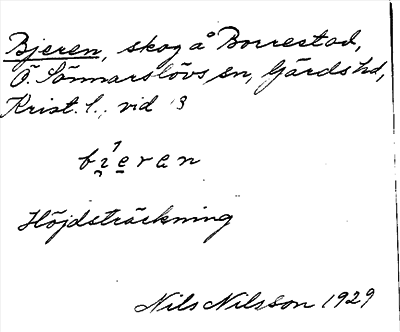 Bjeren, skog å Borrestad,
Ö. Sönnarslövs sn, Gärds hd,
Krist. l., vid 3
bi̯eren
Höjdsträckning
Nils Nilsson 1929